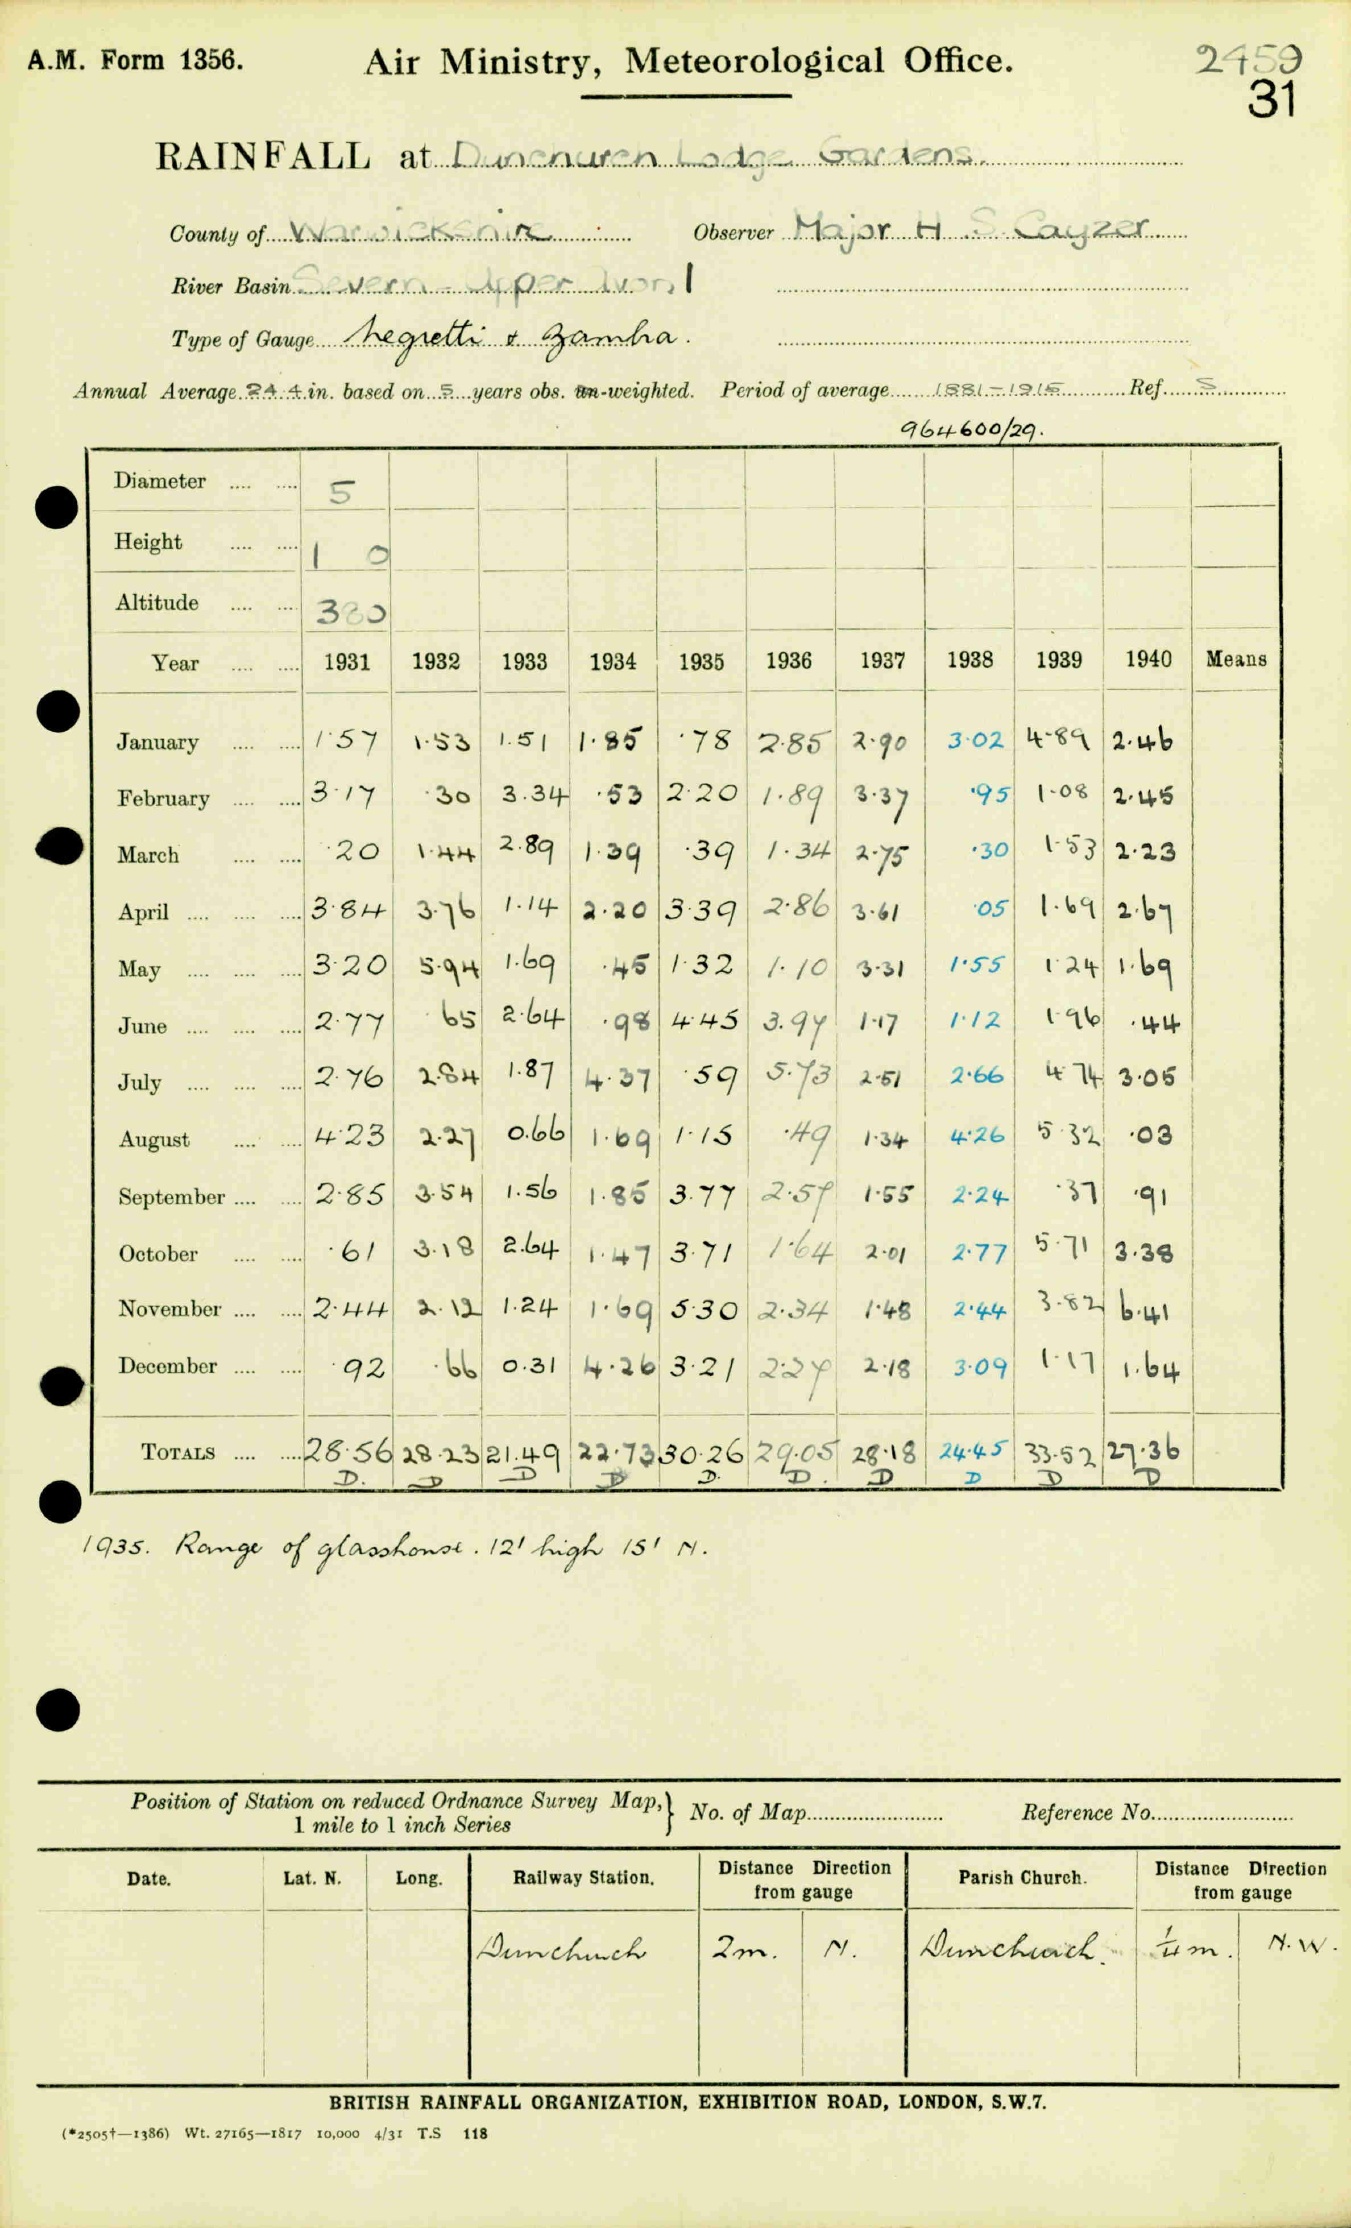 A.M. Form 1356. Air Ministry, Meteorological Office. 2459
31
RAINFALL at Dunchurch Lodge Gardens.
County of Warwickshire Observer Major H. S. Cayzer
River Basin Severn - Upper Avon 1
Type of Gauge Negretti & Zambra.
Annual Average 24.4 in. based on 5 years obs. un-weighted. Period of average 1881-1915 Ref. S
964600/29.
Diameter .... .... 5
Height .... .... 1 0
Altitude .... .... 380
Year .... .... 1931 1932 1933 1934 1935 1936 1937 1938 1939 1940 Means
January .... .... 1.57 1.53 1.51 1.85 .78 2.85 2.90 3.02 4.89 2.46
February .... .... 3.17 .30 3.34 .53 2.20 1.89 3.37 .95 1.08 2.45
March .... .... .20 1.44 2.89 1.39 .39 1.34 2.75 .30 1.53 2.23
April .... .... .... 3.84 3.76 1.14 2.20 3.39 2.86 3.61 .05 1.69 2.67
May .... .... .... 3.20 5.94 1.69 .45 1.32 1.10 3.31 1.55 1.24 1.69
June .... .... .... 2.77 .65 2.64 .98 4.45 3.97 1.17 1.12 1.96 .44
July .... .... .... 2.76 2.84 1.87 4.37 .59 5.73 2.51 2.66 4.74 3.05
August .... .... 4.23 2.27 0.66 1.69 1.15 .49 1.34 4.26 5.32 .03
September .... .... 2.85 3.54 1.56 1.85 3.77 2.57 1.55 2.24 .37 .91
October .... .... .61 3.18 2.64 1.47 3.71 1.64 2.01 2.77 5.71 3.38
November .... .... 2.44 2.12 1.24 1.69 5.30 2.34 1.48 2.44 3.82 6.41
December .... .... .92 .66 0.31 4.26 3.21 2.27 2.18 3.09 1.17 1.64
TOTALS .... .... 28.56 28.23 21.49 22.73 30.26 29.05 28.18 24.45 33.52 27.36
D. D D D D. D. D D D D
1935. Range of glasshouse. 12' high 15' N.
Position of Station on reduced Ordnance Survey Map, } No. of Map Reference No.
1 mile to 1 inch Series
Date. Lat. N. Long. Railway Station. Distance Direction from gauge Parish Church. Distance Direction from gauge
Dunchurch 2m. N. Dunchurch. ¼ m. N.W.
BRITISH RAINFALL ORGANIZATION, EXHIBITION ROAD, LONDON, S.W.7.
(*2505†—1386) Wt. 27165—1817 10,000 4/31 T.S 118